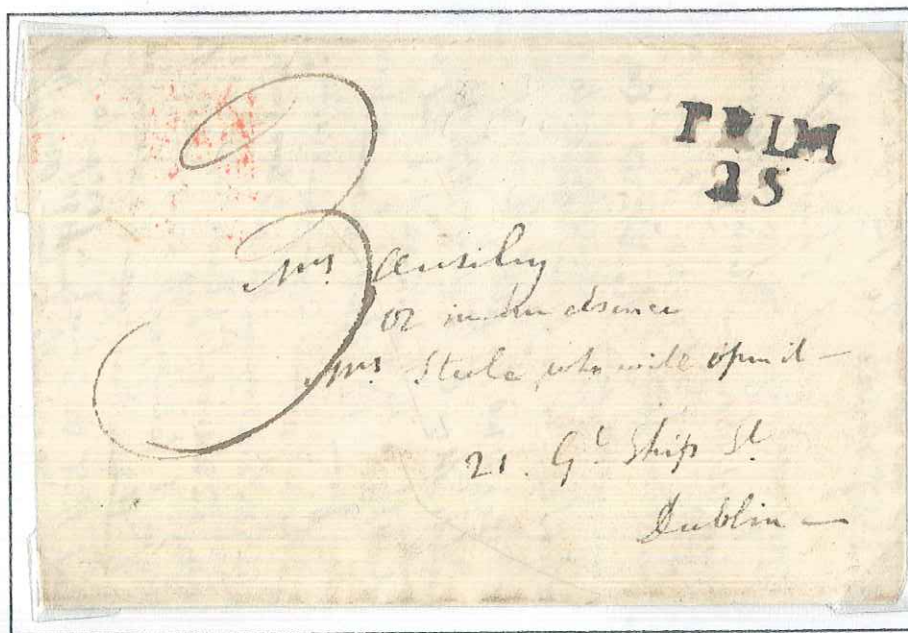 TRIM
25
3
Mrs
or in her absence
Mrs Steele who will open it —
21. Gt Ship St
Dublin —